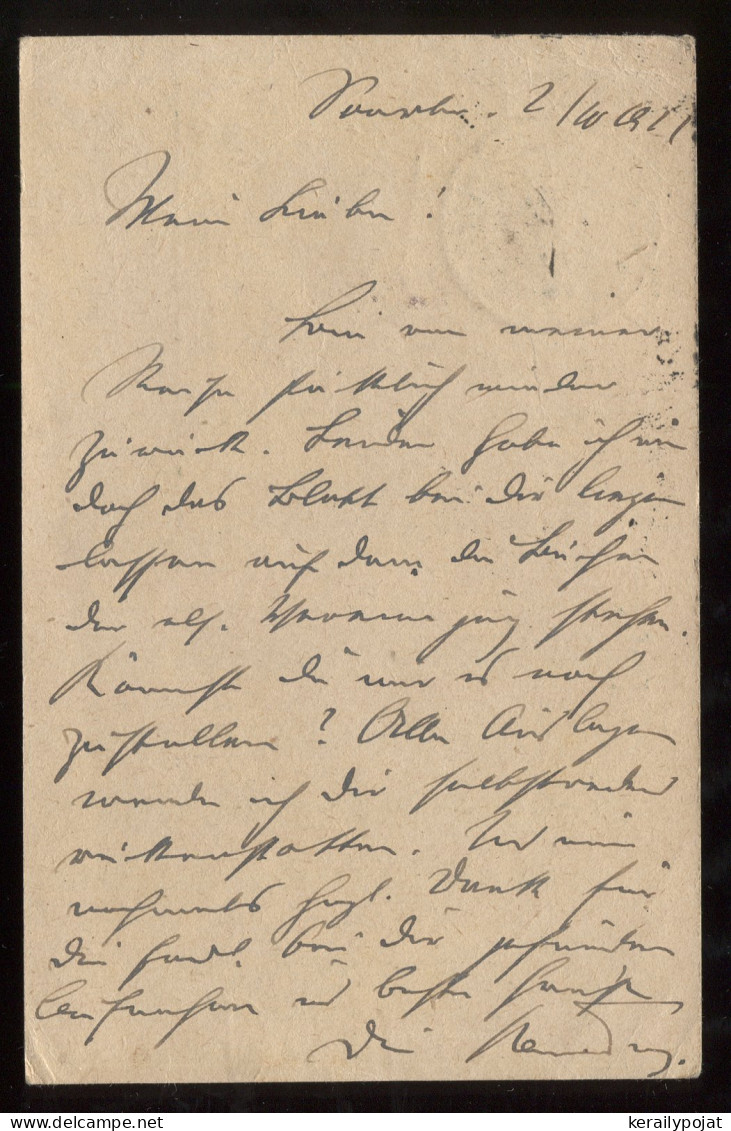 Saarbr. 2/10 1921
Mein Lieber!
Bin von meiner
Reise glücklich wieder
zurück. Leider habe ich nun
doch das Blatt bei dir liegen
lassen auf dem die Bücher
der els. stehen.
Könntest du mir es noch
zustellen? Alle Auslagen
werde ich dir selbstredend
rückerstatten. Und nun
nochmals herzl. Dank für
die frdl. bei dir gefundene
Aufnahme und beste Grüße
Dein
kerailypojat.com